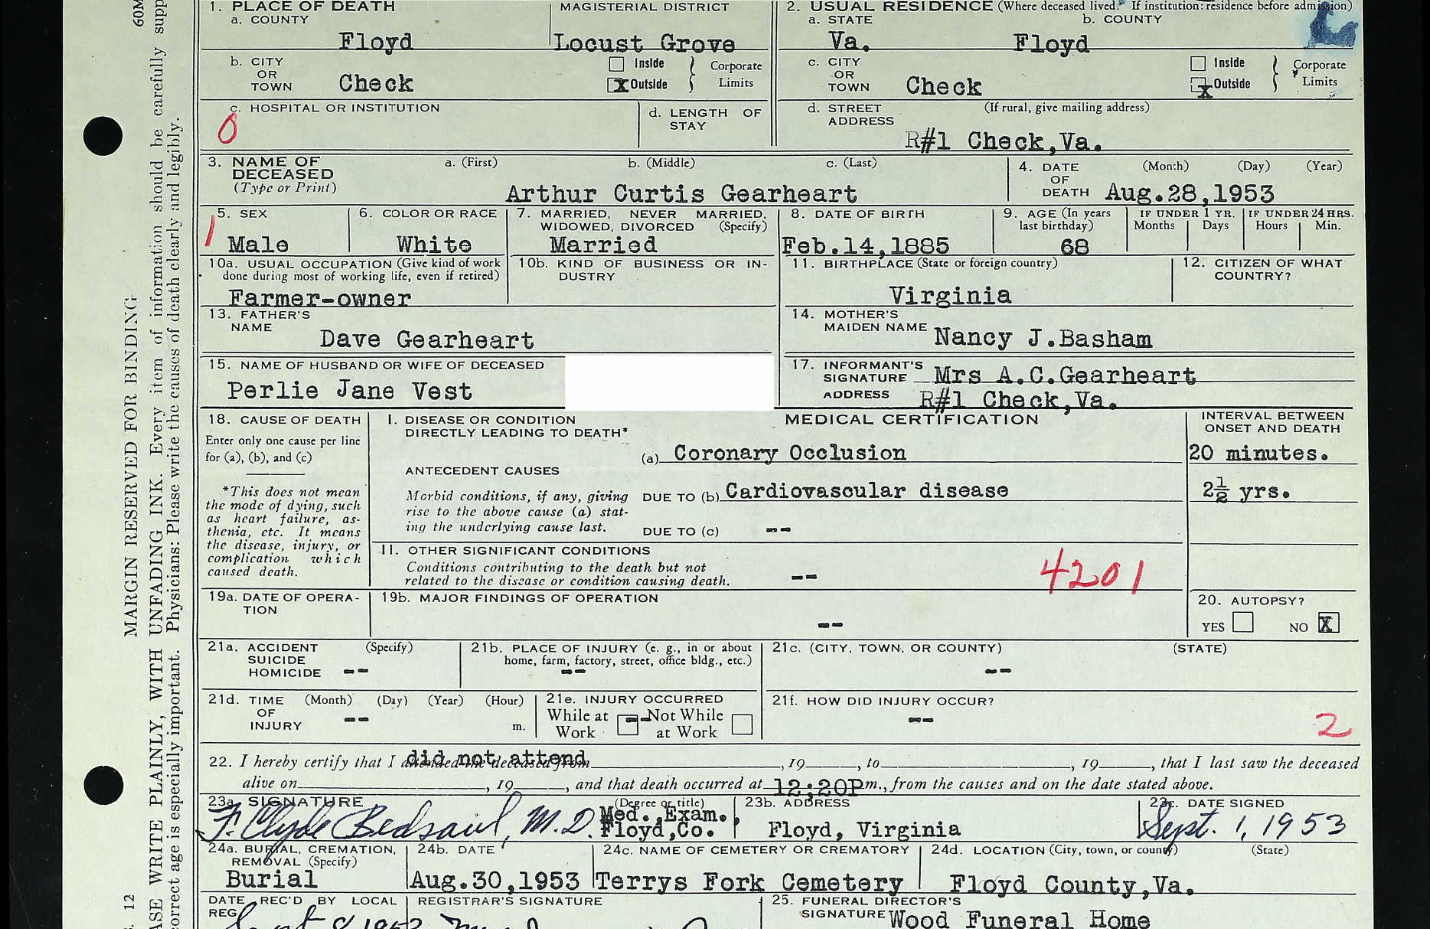 1. PLACE OF DEATH
a. COUNTY
Floyd
MAGISTERIAL DISTRICT
Locust Grove
2. USUAL RESIDENCE (Where deceased lived. If institution: residence before admission)
a. STATE
Va.
b. COUNTY
Floyd
b. CITY OR TOWN
Check
Inside
X Outside
Corporate Limits
c. CITY OR TOWN
Check
Inside
X Outside
Corporate Limits
c. HOSPITAL OR INSTITUTION
0
d. LENGTH OF STAY
d. STREET ADDRESS
(If rural, give mailing address)
R#1 Check,Va.
3. NAME OF DECEASED
(Type or Print)
a. (First)
b. (Middle)
c. (Last)
Arthur Curtis Gearheart
4. DATE OF DEATH
(Month) (Day) (Year)
Aug.28,1953
1
5. SEX
Male
6. COLOR OR RACE
White
7. MARRIED, NEVER MARRIED, WIDOWED, DIVORCED (Specify)
Married
8. DATE OF BIRTH
Feb.14,1885
9. AGE (In years last birthday)
68
IF UNDER 1 YR.
Months Days
IF UNDER 24 HRS.
Hours Min.
10a. USUAL OCCUPATION (Give kind of work done during most of working life, even if retired)
Farmer-owner
10b. KIND OF BUSINESS OR INDUSTRY
11. BIRTHPLACE (State or foreign country)
Virginia
12. CITIZEN OF WHAT COUNTRY?
13. FATHER'S NAME
Dave Gearheart
14. MOTHER'S MAIDEN NAME
Nancy J.Basham
15. NAME OF HUSBAND OR WIFE OF DECEASED
Perlie Jane Vest
17. INFORMANT'S SIGNATURE Mrs A.C.Gearheart
ADDRESS R#1 Check,Va.
18. CAUSE OF DEATH
Enter only one cause per line for (a), (b), and (c)
*This does not mean the mode of dying, such as heart failure, asthenia, etc. It means the disease, injury, or complication which caused death.
MEDICAL CERTIFICATION
I. DISEASE OR CONDITION DIRECTLY LEADING TO DEATH*
(a) Coronary Occlusion
ANTECEDENT CAUSES
Morbid conditions, if any, giving rise to the above cause (a) stating the underlying cause last.
DUE TO (b) Cardiovascular disease
DUE TO (c) --
INTERVAL BETWEEN ONSET AND DEATH
20 minutes.
2½ yrs.
II. OTHER SIGNIFICANT CONDITIONS
Conditions contributing to the death but not related to the disease or condition causing death.
--
4201
19a. DATE OF OPERATION
19b. MAJOR FINDINGS OF OPERATION
--
20. AUTOPSY?
YES NO X
21a. ACCIDENT SUICIDE HOMICIDE (Specify)
--
21b. PLACE OF INJURY (e. g., in or about home, farm, factory, street, office bldg., etc.)
--
21c. (CITY, TOWN, OR COUNTY) (STATE)
--
21d. TIME OF INJURY (Month) (Day) (Year) (Hour)
-- m.
21e. INJURY OCCURRED
While at Work -- Not While at Work
21f. HOW DID INJURY OCCUR?
--
2
22. I hereby certify that I attended the deceased from did not attend , 19 , to , 19 , that I last saw the deceased
alive on , 19 , and that death occurred at 12:20P m., from the causes and on the date stated above.
23a. SIGNATURE
F. Clyde Bedsaul, M.D.
(Degree or title)
Med. Exam., Floyd,Co.
23b. ADDRESS
Floyd, Virginia
23c. DATE SIGNED
Sept. 1, 1953
24a. BURIAL, CREMATION, REMOVAL (Specify)
Burial
24b. DATE
Aug.30,1953
24c. NAME OF CEMETERY OR CREMATORY
Terrys Fork Cemetery
24d. LOCATION (City, town, or county) (State)
Floyd County,Va.
DATE REC'D BY LOCAL REG.
REGISTRAR'S SIGNATURE
25. FUNERAL DIRECTOR'S SIGNATURE Wood Funeral Home
MARGIN RESERVED FOR BINDING
WRITE PLAINLY, WITH UNFADING INK. Every item of information should be carefully
correct age is especially important. Physicians: Please write the causes of death clearly and legibly.
60M
12